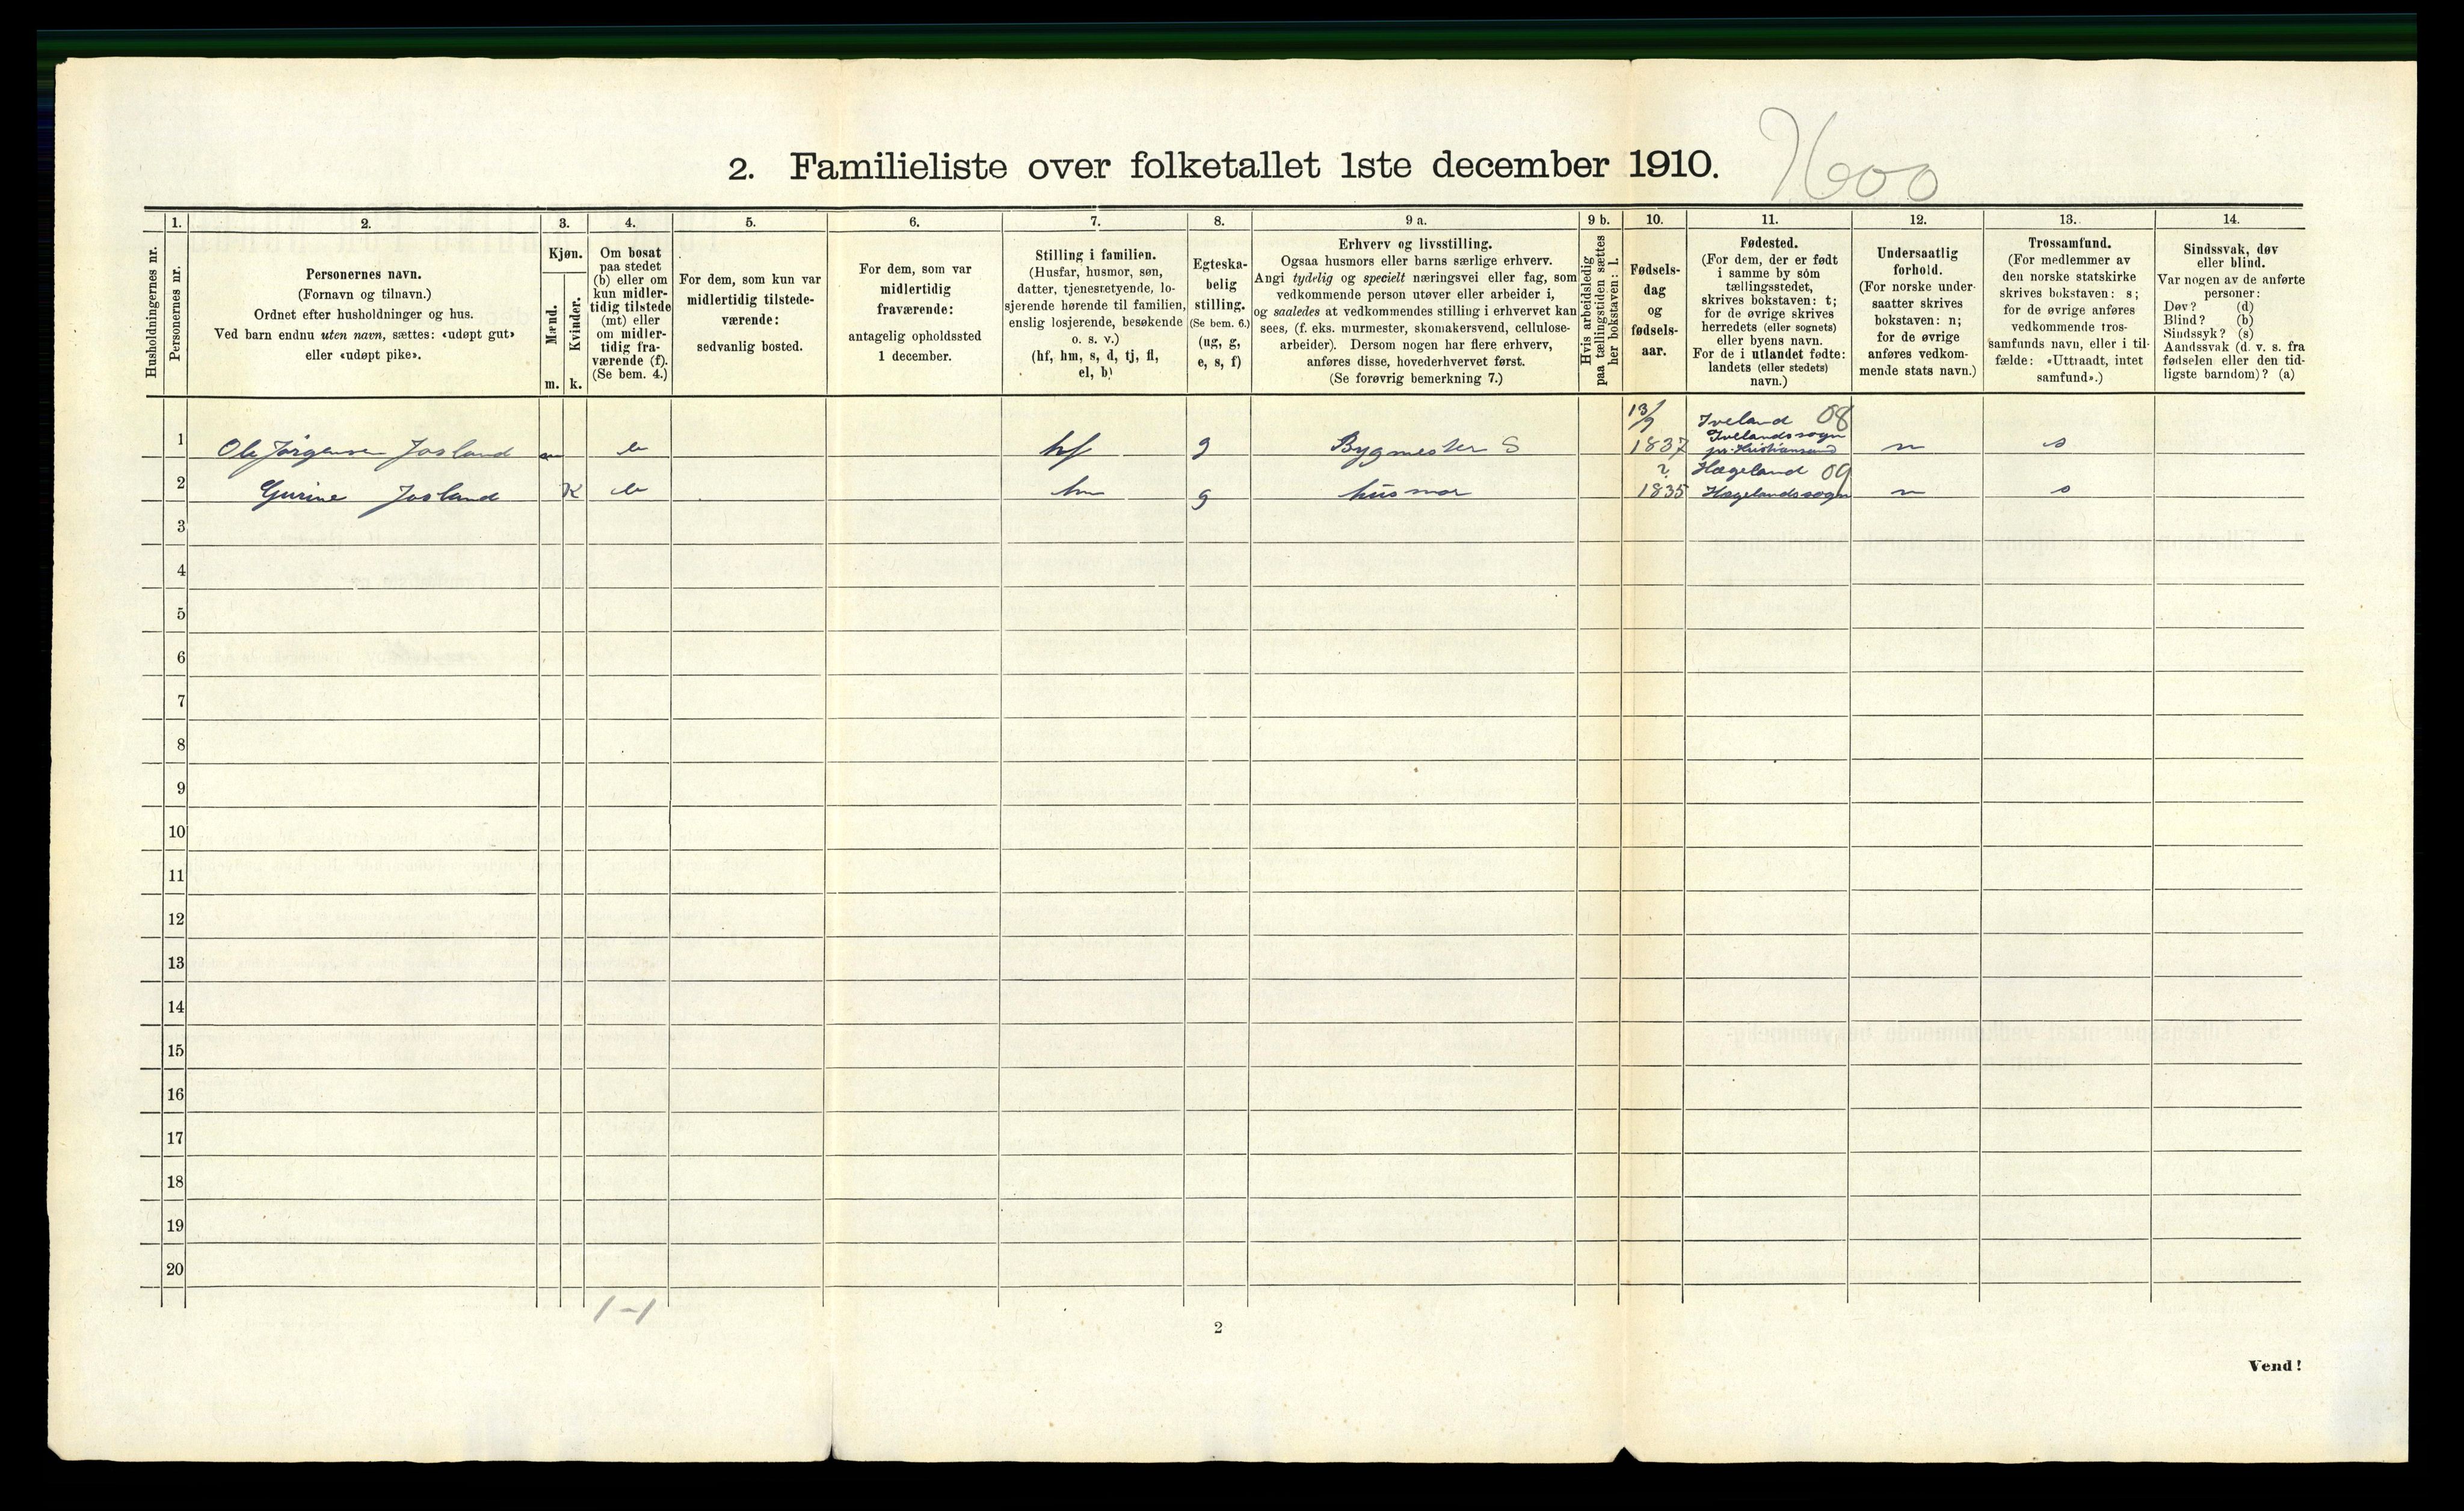 2. Familieliste over folketallet 1ste december 1910.
1. 2. 3. 4. 5. 6. 7. 8. 9 a. 9 b. 10. 11. 12. 13. 14.
Husholdningernes nr.
Personernes nr.
Personernes navn.
(Fornavn og tilnavn.)
Ordnet efter husholdninger og hus.
Ved barn endnu uten navn, sættes: «udøpt gut»
eller «udøpt pike».
Kjøn.
Mænd.
Kvinder.
m. k.
Om bosat
paa stedet
(b) eller om
kun midler-
tidig tilstede
(mt) eller
om midler-
tidig fra-
værende (f).
(Se bem. 4.)
For dem, som kun var
midlertidig tilstede-
værende:
sedvanlig bosted.
For dem, som var
midlertidig
fraværende:
antagelig opholdssted
1 december.
Stilling i familien.
(Husfar, husmor, søn,
datter, tjenestetyende, lo-
sjerende hørende til familien,
enslig losjerende, besøkende
o. s. v.)
(hf, hm, s, d, tj, fl,
el, b)
Egteska-
belig
stilling.
(Se bem. 6.)
(ug, g,
e, s, f)
Erhverv og livsstilling.
Ogsaa husmors eller barns særlige erhverv.
Angi tydelig og specielt næringsvei eller fag, som
vedkommende person utøver eller arbeider i,
og saaledes at vedkommendes stilling i erhvervet kan
sees, (f. eks. murmester, skomakersvend, cellulose-
arbeider). Dersom nogen har flere erhverv,
anføres disse, hovederhvervet først.
(Se forøvrig bemerkning 7.)
Hvis arbeidsledig
paa tællingstiden sættes
her bokstaven: l.
Fødsels-
dag
og
fødsels-
aar.
Fødested.
(For dem, der er født
i samme by som
tællingsstedet,
skrives bokstaven: t;
for de øvrige skrives
herredets (eller sognets)
eller byens navn.
For de i utlandet fødte:
landets (eller stedets)
navn.)
Undersaatlig
forhold.
(For norske under-
saatter skrives
bokstaven: n;
for de øvrige
anføres vedkom-
mende stats navn.)
Trossamfund.
(For medlemmer av
den norske statskirke
skrives bokstaven: s;
for de øvrige anføres
vedkommende tros-
samfunds navn, eller i til-
fælde: «Uttraadt, intet
samfund».)
Sindssvak, døv
eller blind.
Var nogen av de anførte
personer:
Døv? (d)
Blind? (b)
Sindssyk? (s)
Aandssvak (d. v. s. fra
fødselen eller den tid-
ligste barndom)? (a)
13/9 Iveland 08
Ivelandssogn
1 Ole Jörgensen Josland m b hf g Bygmester S 1837 pr. Kristiansand n s
Hægeland 09
2 Gurine Josland K b hm g husmor 1835 Hægelandssogn n s
3
4
5
6
7
8
9
10
11
12
13
14
15
16
17
18
19
20
1-1
2
Vend!